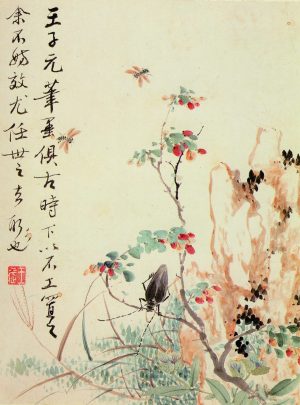 王子元筆墨俱古時下以不工
余不妨效尤任世之去取也